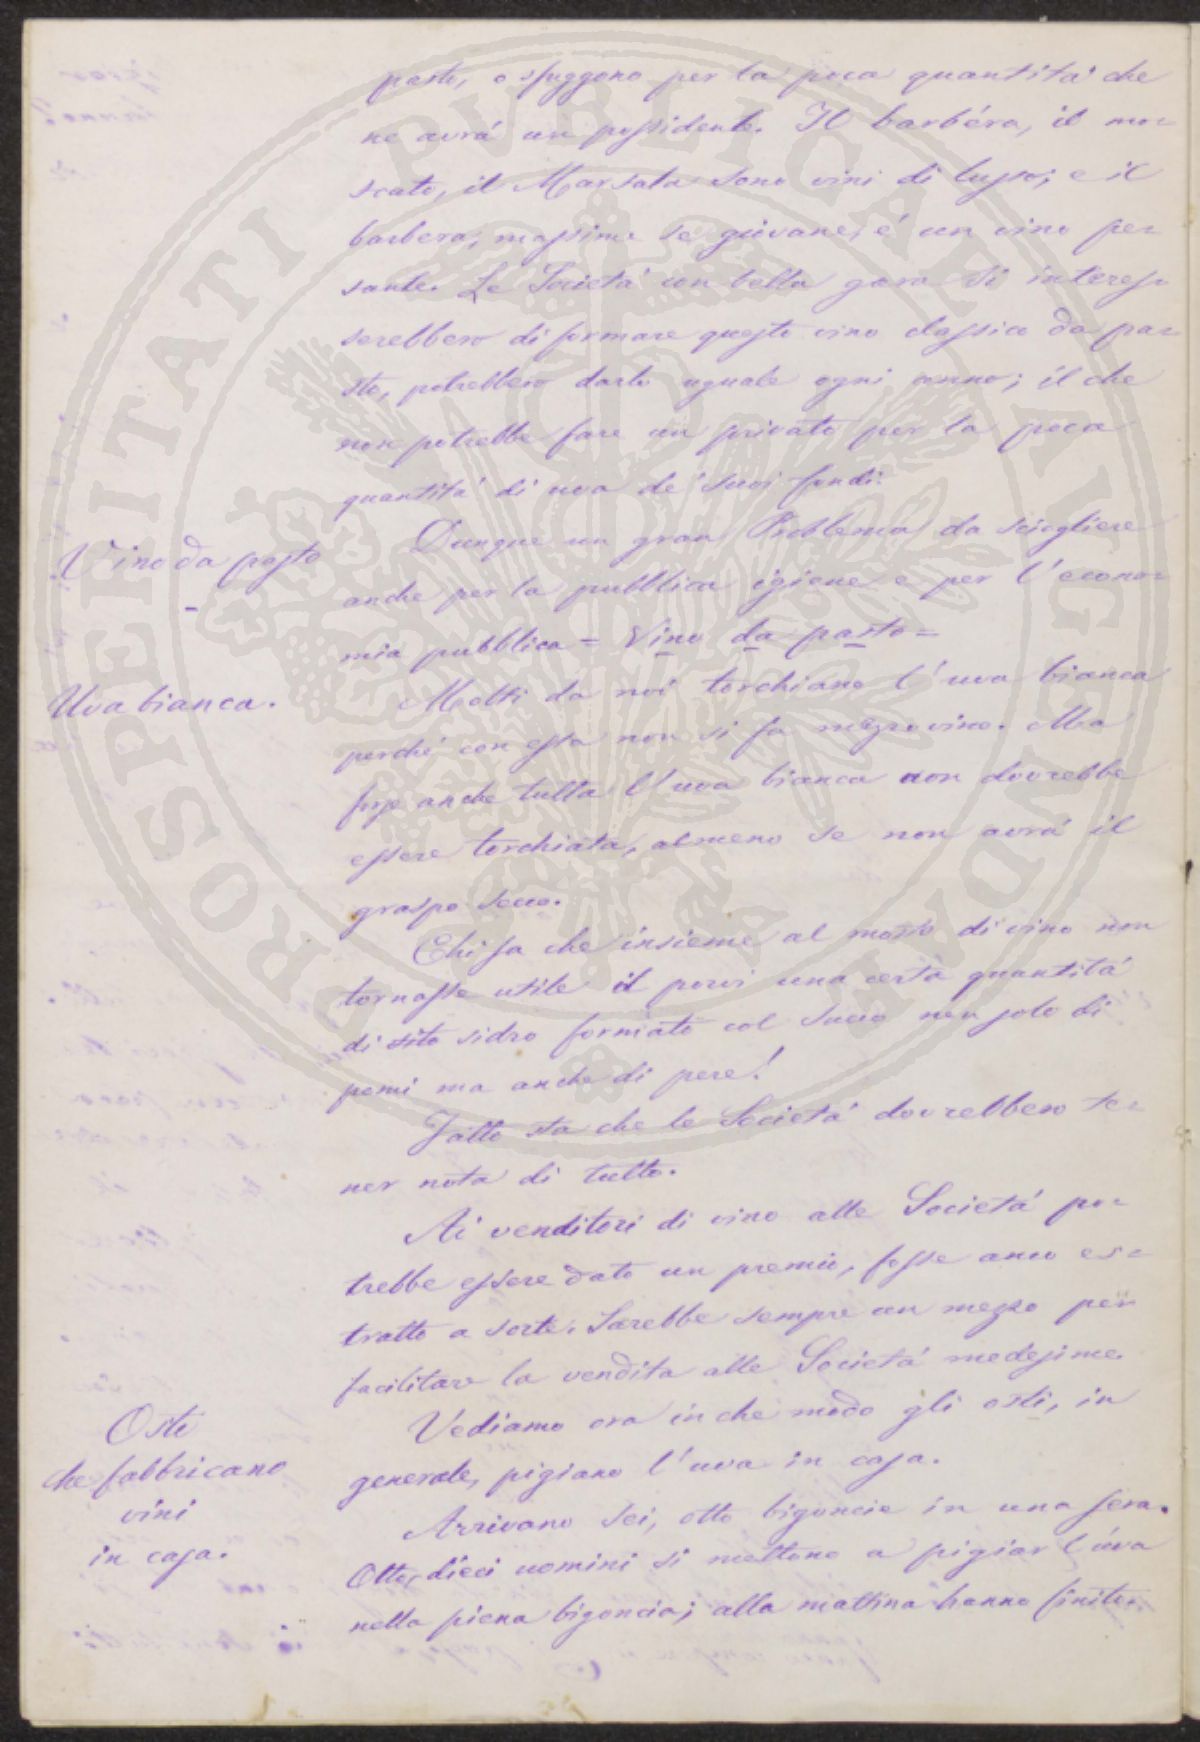 pasto, o sfuggono per la poca quantitá che
ne avrá un possidente. Il barbéra, il mo=
scato, il Marsala sono vini di lusso; e il
barbera, massime se giovane, é un vino pe=
sante. Le Societá con bella gara si interes=
serebbero di formare questo vino classico da pa=
sto, potrebbero darlo uguale ogni anno; il che
non potrebbe fare un privato per la poca
quantitá di uva de' suoi fondi.
Vino da pasto
Dunque un gran Problema da sciogliere
anche per la pubblica igiene e per l'econo=
mia pubblica = Vino da pasto =
Uva bianca.
Molti da noi torchiano l'uva bianca
perché con essa non si fa mezzo vino. Ma
forse anche tutta l'uva bianca non dovrebbe
essere torchiata, almeno se non avrá il
graspo secco.
Chi sa che insieme al mosto di vino non
tornasse utile il porvi una certa quantitá
di sito sidro formato col succo non solo di
pomi ma anche di pere!
Fatto sta che le Societá dovrebbero te=
ner nota di tutto.
Ai venditori di vino alle Societá po=
trebbe essere dato un premio, fosse anco es=
tratto a sorte. Sarebbe sempre un mezzo per
facilitare la vendita alle Societá medesime.
Osti
che fabbricano
vini
in casa.
Vediamo ora in che modo gli osti, in
generale, pigiano l'uva in casa.
Arrivano sei, otto bigoncie in una sera.
Otto, dieci uomini si mettono a pigiar l'uva
nella piena bigoncia; alla mattina hanno finito.
PROSPERITATI PUBLICAE AUGENDAE